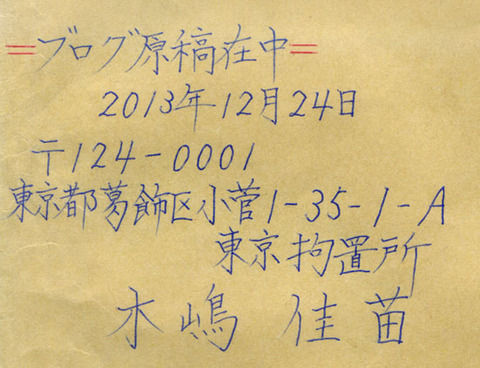 =ブログ原稿在中=
2013年12月24日
〒124-0001
東京都葛飾区小菅1-35-1-A
東京拘置所
木嶋 佳苗